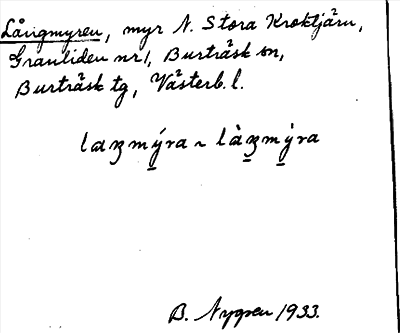 Långmyren, myr N. Stora Kroktjärn,
Granliden nr 1, Burträsk sn,
Burträsk tg, Västerb. l.
laʒmý̱ra ~ làʒ̱mỳ̱ra
B. Nygren 1933.